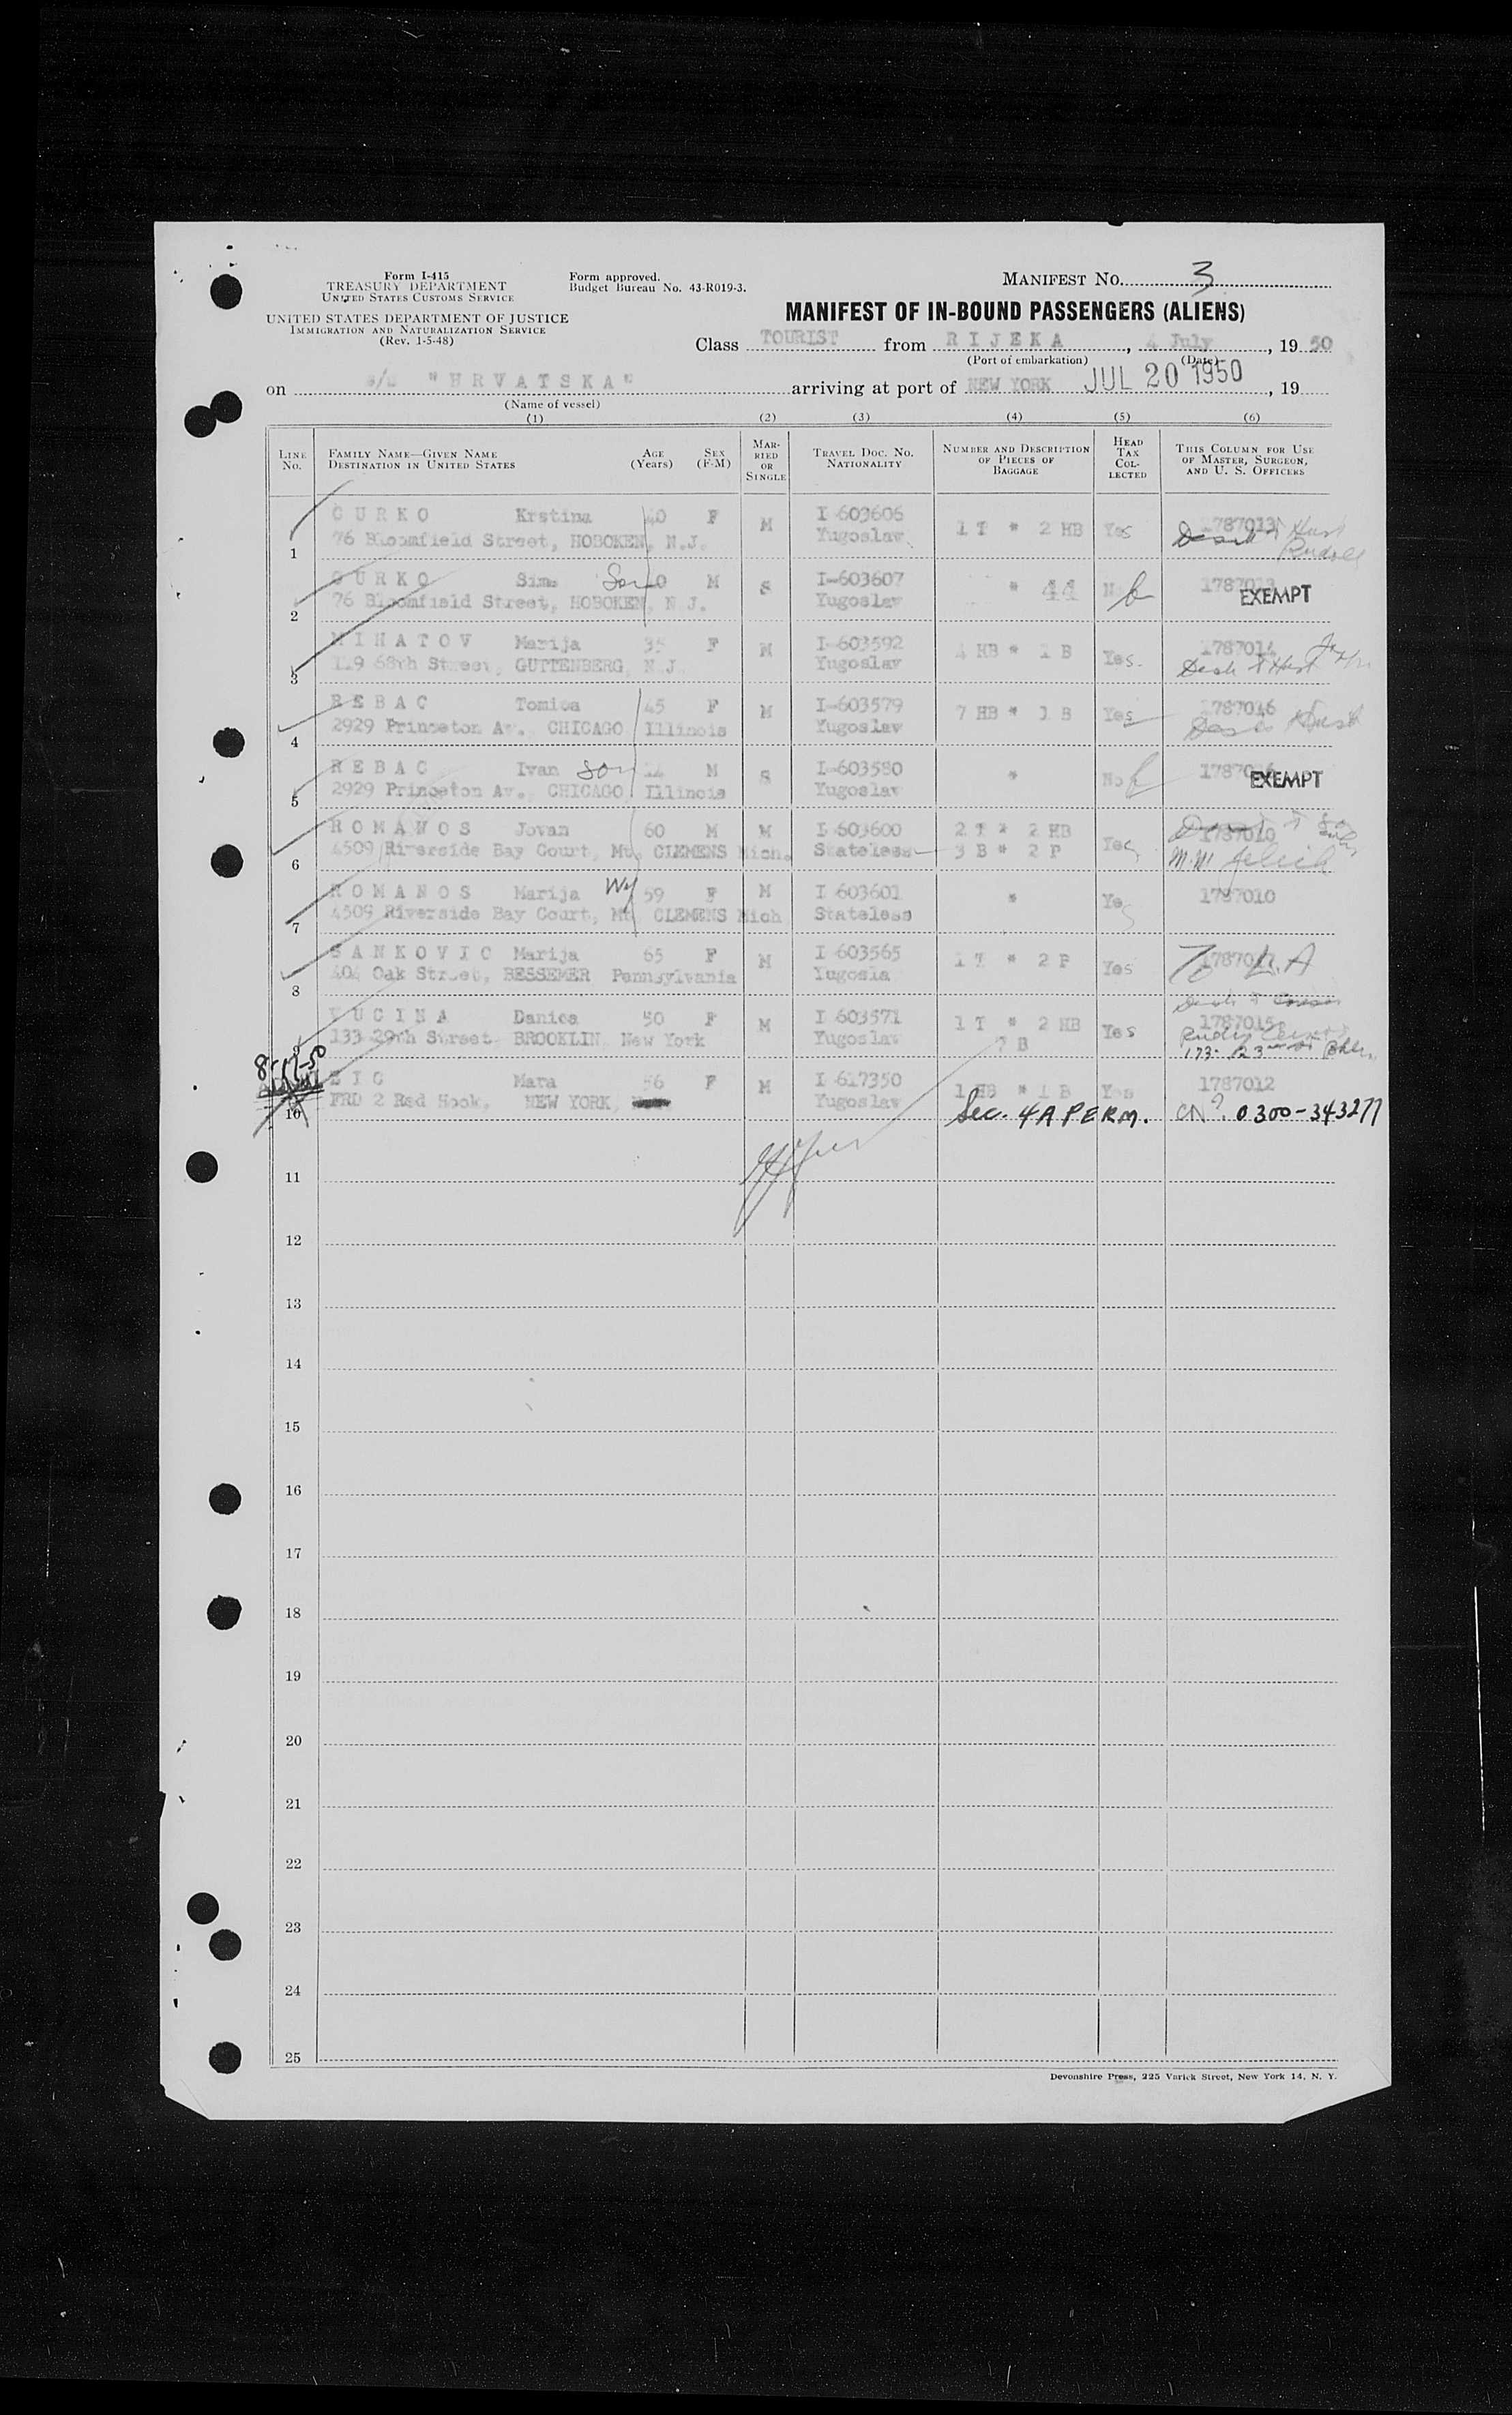 Form I-415
TREASURY DEPARTMENT
UNITED STATES CUSTOMS SERVICE
UNITED STATES DEPARTMENT OF JUSTICE
IMMIGRATION AND NATURALIZATION SERVICE
(Rev. 1-5-48)
Form approved.
Budget Bureau No. 43-R019-3.
MANIFEST NO. 3
MANIFEST OF IN-BOUND PASSENGERS (ALIENS)
Class TOURIST from RIJEKA, 4 July, 19 50
(Port of embarkation) (Date)
on s/s "HRVATSKA" arriving at port of NEW YORK JUL 20 1950, 19
(Name of vessel)
(1) (2) (3) (4) (5) (6)
LINE No. FAMILY NAME—GIVEN NAME DESTINATION IN UNITED STATES AGE (Years) SEX (F-M) MARRIED OR SINGLE TRAVEL DOC. NO. NATIONALITY NUMBER AND DESCRIPTION OF PIECES OF BAGGAGE HEAD TAX COLLECTED THIS COLUMN FOR USE OF MASTER, SURGEON, AND U. S. OFFICERS
1 CURKO Krstina 40 F M I-603606 1 T * 2 HB Yes 1787013
76 Bloomfield Street, HOBOKEN, N.J. Yugoslav
2 CURKO Sime Son M S I-603607 * 1787013
76 Bloomfield Street, HOBOKEN, N.J. Yugoslav EXEMPT
3 MIHATOV Marija 35 F M I-603592 4 HB * 1 B Yes 1787014
119 68th Street, GUTTENBERG, N.J. Yugoslav
4 REBAC Tomica 45 F M I-603579 7 HB * 1 B Yes 1787016
2929 Princeton Av., CHICAGO Illinois Yugoslav
5 REBAC Ivan son M S I-603580 * No 1787016
2929 Princeton Av., CHICAGO Illinois Yugoslav EXEMPT
6 ROMANOS Jovan 60 M M I-603600 2 T * 2 HB Yes 1787010
4509 Riverside Bay Court, Mt. CLEMENS Mich. Stateless 3 B * 2 P
7 ROMANOS Marija Wf 59 F M I 603601 * Yes 1787010
4509 Riverside Bay Court, Mt. CLEMENS Mich Stateless
8 SANKOVIC Marija 65 F M I 603565 1 T * 2 P Yes
404 Oak Street, BESSEMER Pennsylvania Yugosla
9 VUCINA Danica 50 F M I 603571 1 T * 2 HB Yes 1787015
133 29th Street BROOKLIN New York Yugoslav 7 B
8-17-50
10 ZIC Mara 56 F M I 617350 1 HB * 1 B Yes 1787012
FRD 2 Red Hook, NEW YORK, Yugoslav Sec. 4 A PERM. 0300-343277
11
12
13
14
15
16
17
18
19
20
21
22
23
24
25
Devonshire Press, 225 Varick Street, New York 14, N. Y.